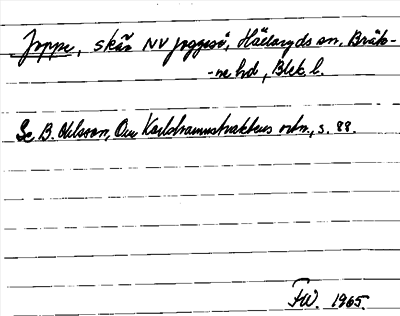 Joppe, skär NV Joggesö, Hällaryds sn, Bräk-
-ne hd, Blek. l.
Se B. Nilsson, Om Karlshamnstraktens ortn., s. 88.
FW. 1965.